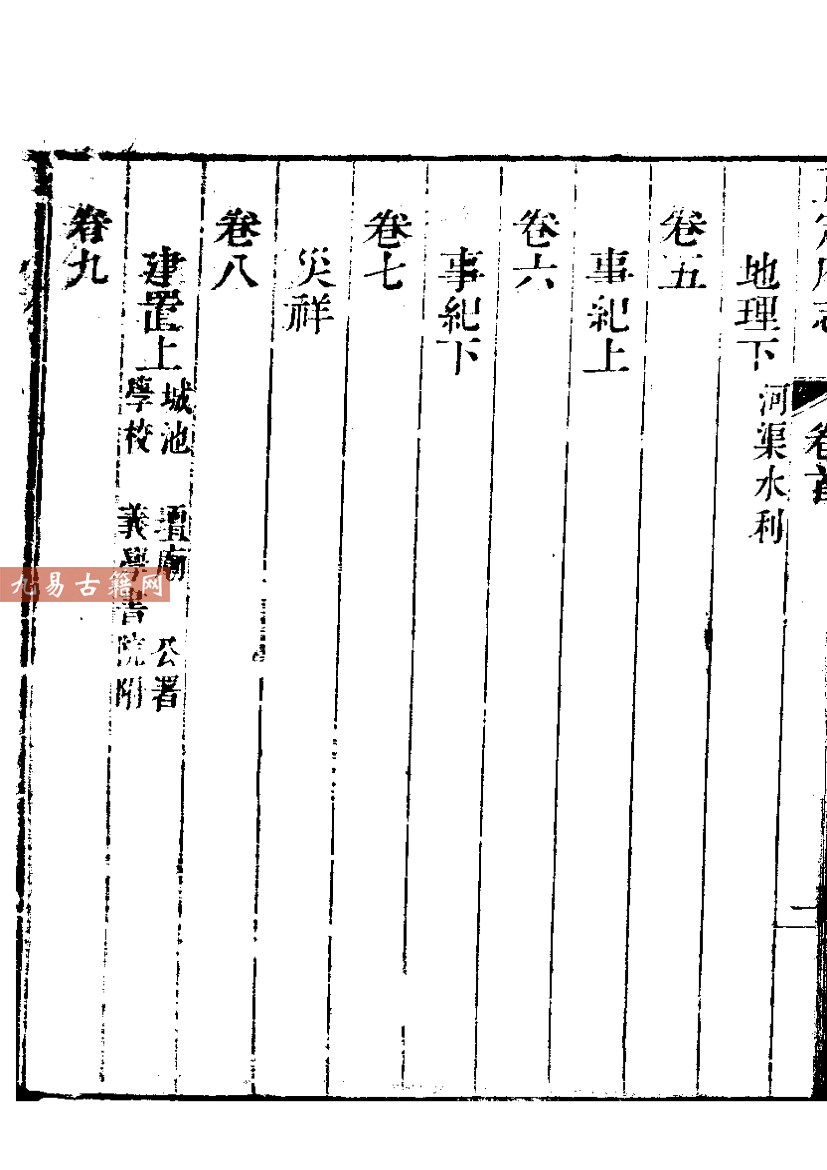 卷首
二
地理下 河渠水利
卷五
事紀上
卷六
事紀下
卷七
災祥
卷八
建置上 城池 壇廟 公署
學校 義學書院附
卷九
九易古籍网